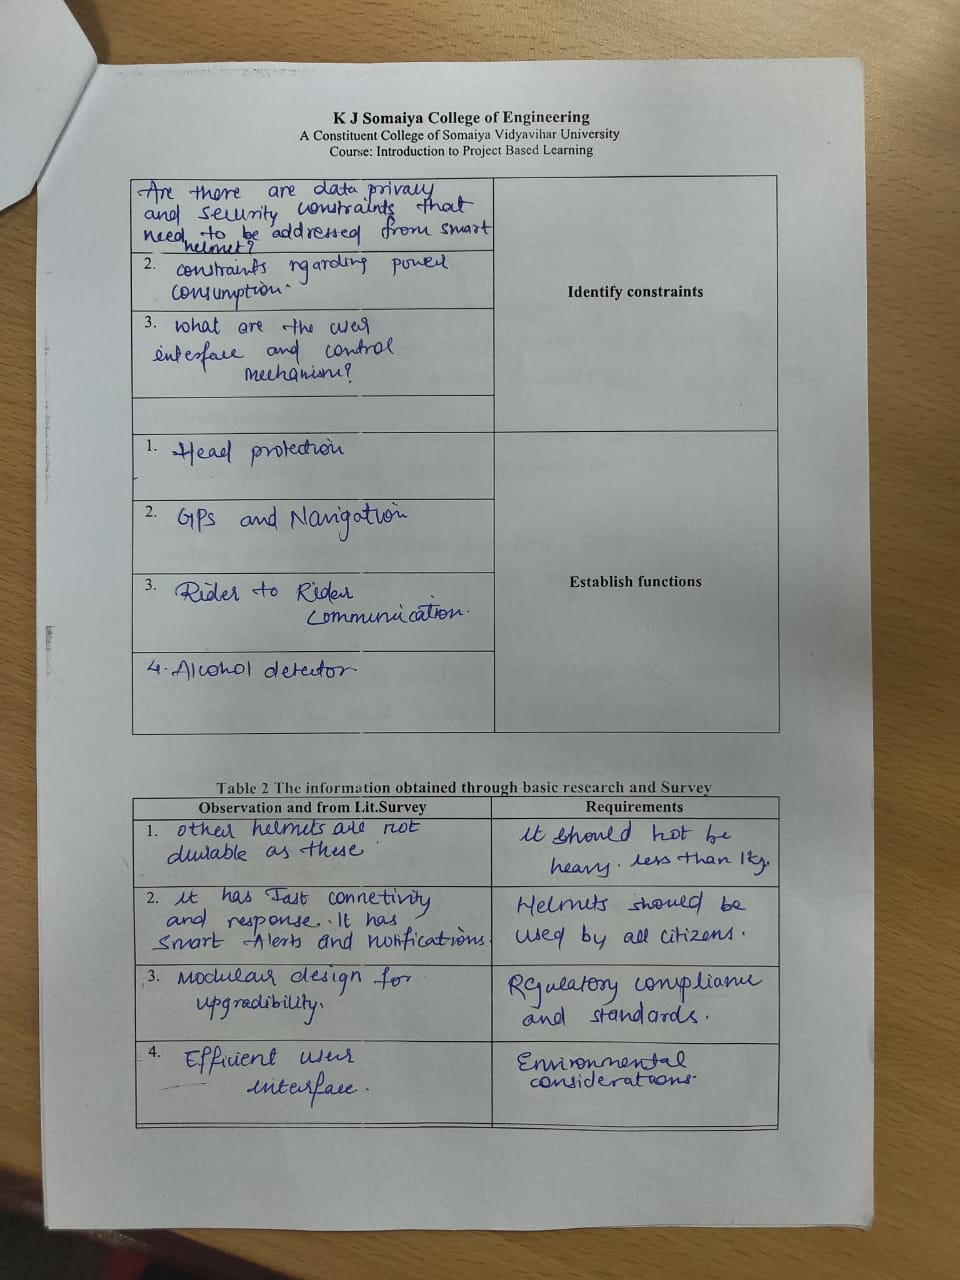 K J Somaiya College of Engineering
A Constituent College of Somaiya Vidyavihar University
Course: Introduction to Project Based Learning
Are there are data privacy
and security constraints that
need to be addressed from smart
helmet?
2. constraints rgarding power
consumption.
3. what are the user
interface and control
mechanism?
Identify constraints
1. Head protection
2. GPs and Navigation
3. Rider to Rider
communication.
4. Alcohol detector
Establish functions
Table 2 The information obtained through basic research and Survey
Observation and from Lit.Survey
Requirements
1. other helmets are not
durable as these
It should not be
heavy. less than 1kg.
2. It has Fast connetivity
and response. It has
Smart Alerts and notifications.
Helmets should be
used by all citizens.
3. Modular design for
upgradibility.
Rgulatory compliance
and standards.
4. Efficient user
interface.
Environmental
considerations